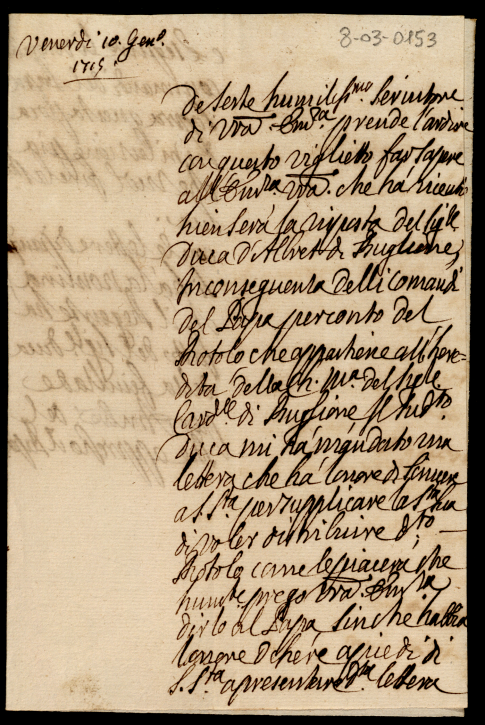 Venerdi 10. Gen.º
1715.
8-03-0153
humiliss.mo servitore
di Vra Em.za prende l'ardire
con questo viglietto far sapere
all'Em.za Vra. che há ricevuto
hieri sera la risposta del Sig.le
Duca d'Albret di Buglione,
Inconsequenza delli comandi
del Papa per conto del
Rotolo che appartiene all'here-
dita della ch. ma. del Sig.le
Card.le di Buglione. Il sud.to
Duca mi há mandato una
lettera che há l'onore di scrivere
a S. S.ta per supplicare la S.ta Sua
di voler distribuire d.to
Rotolo come le piacera, che
hum.te prego Vra. Em.za
dirlo al Papa sinche habbia
l'onore d'essere a piedi di
S. S.ta a presentare d.ta lettera